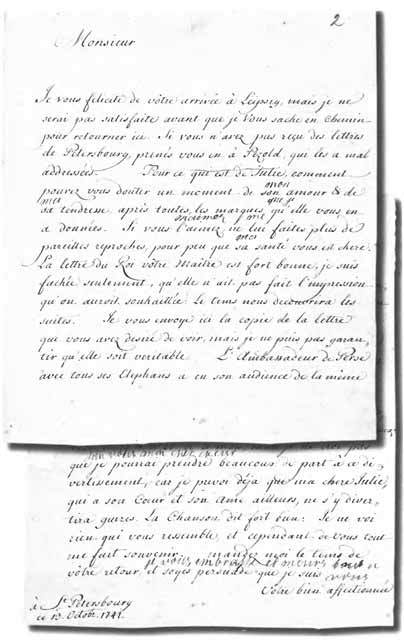 2
Monsieur
Je vous felicite de vôtre arrivée à Leipzig, mais je ne
serai pas satisfaite avant que je Vous sache en chemin
pour retourner ici. Si vous n'avez pas reçu des lettres
de Petersbourg, prenés vous en à Pezold, qui les a mal
addressées. Pour ce que est de Julie, comment
mon
pouvez vous douter un moment de son amour & de
mes que je
sa tendresse après toutes les marques, qu'elle vous en
me
a données. Si vous l'aimez ne lui faites plus de
mes
pareilles reproches, pour peu que sa santé vous est chere.
La lettre du Roi vôtre Maitre est fort bonne, je suis
fachée seulement, qu'elle n'ait pas fait l'impression
qu'on auroit souhaittée. Le tems nous decouvrira les
suites. Je vous envoye ici la copie de la lettre
que vous avez desiré de voir, mais je ne puis pas garan-
tir qu'elle soit veritable. L'Ambassadeur de Perse
avec tous ses Elephans a eu son audience de la même
que je pourrai prendre beaucoup de part à ce di-
vertissement, car je prevoi déja que ma chere Julie,
qui a son Cœur et son Ame ailleurs, ne s'y diver-
tira guères. La Chanson dit fort bien: Je ne voi
rien qui vous ressemble, et cependant de vous tout
me fait souvenir. mandez moi le tems de
je vous embrasse et meurs
vôtre retour, et soyes persuadé que je suis
vous
Votre bien affectionnée
à St. Petersbourg
ce 13. Octobr. 1741.